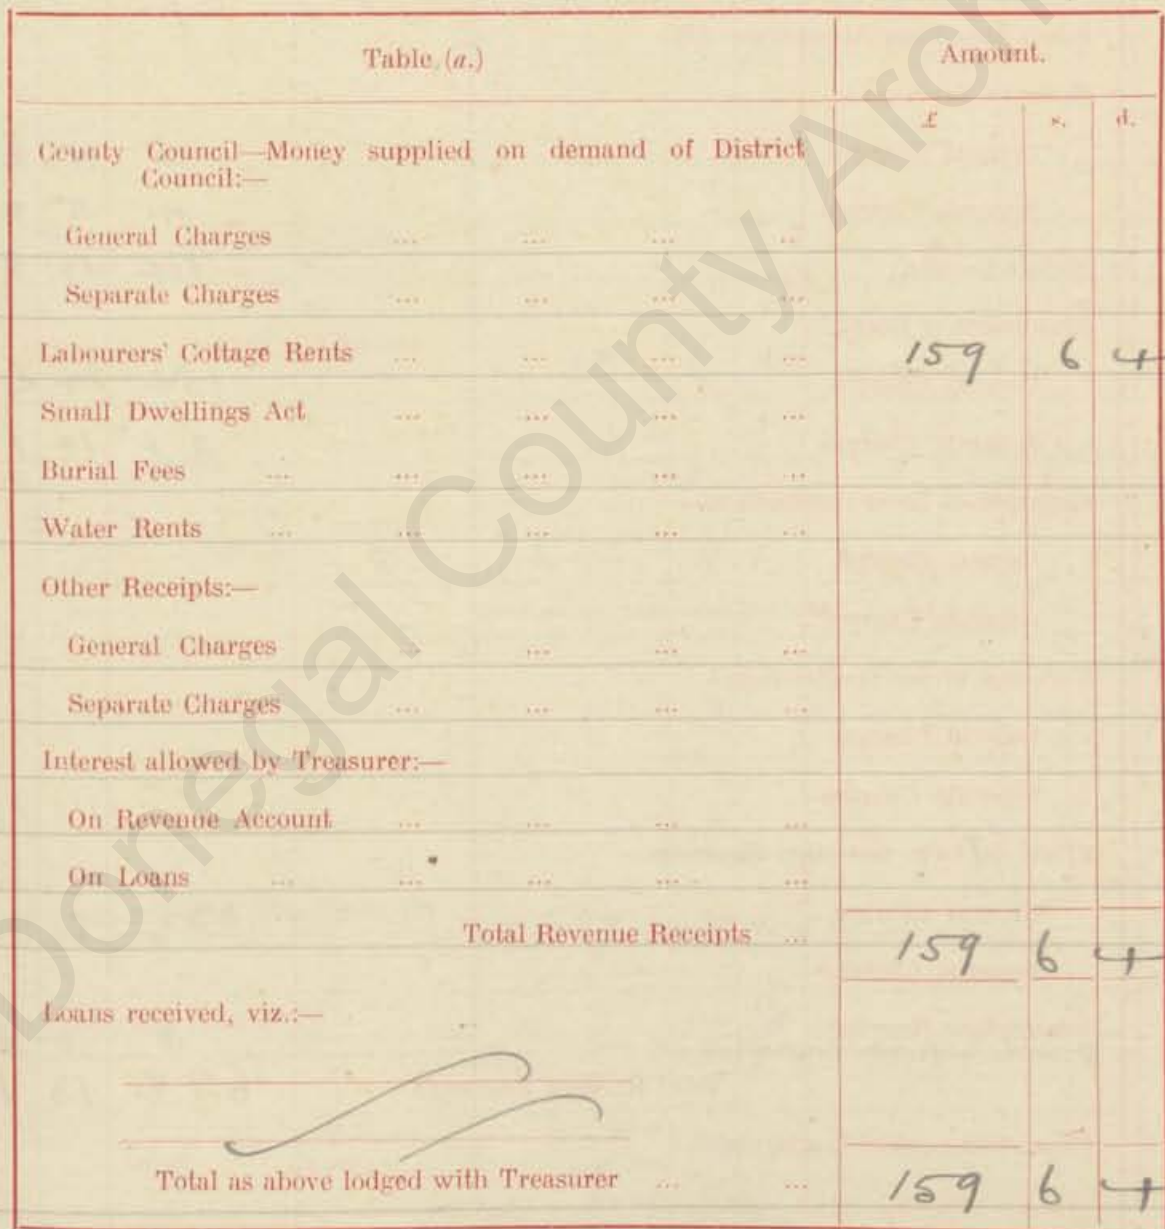 Table (a.) Amount.
£ s. d.
County Council—Money supplied on demand of District
Council:—
General Charges ... ... ... ...
Separate Charges ... ... ... ...
Labourers' Cottage Rents ... ... ... ... 159 6 4
Small Dwellings Act ... ... ... ...
Burial Fees ... ... ... ... ...
Water Rents ... ... ... ... ...
Other Receipts:—
General Charges ... ... ... ...
Separate Charges ... ... ... ...
Interest allowed by Treasurer:—
On Revenue Account ... ... ... ...
On Loans ... ... ... ... ...
Total Revenue Receipts ... 159 6 4
Loans received, viz.:—
Total as above lodged with Treasurer ... ... 159 6 4
Donegal County Arch